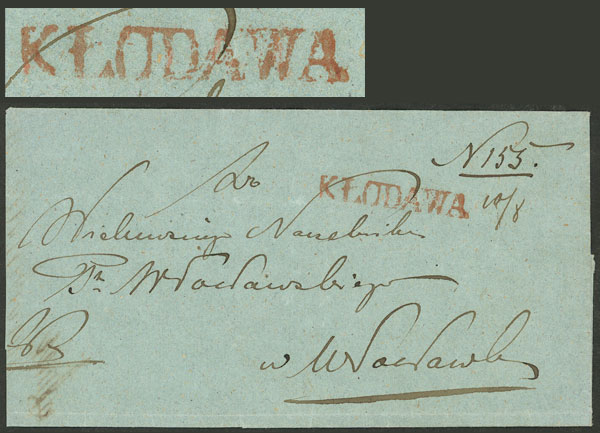 KŁODAWA
N 155.
Do
KŁODAWA
10/8
Wielmożnego Naczelnika
Ptu Włocławskiego
w Włocławku